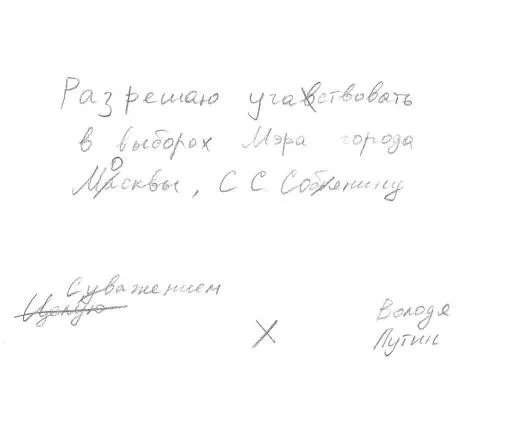 Разрешаю участвовать
в выборах Мэра города
Москвы, С С Собянину
С уважением
Целую
X
Володя
Путин